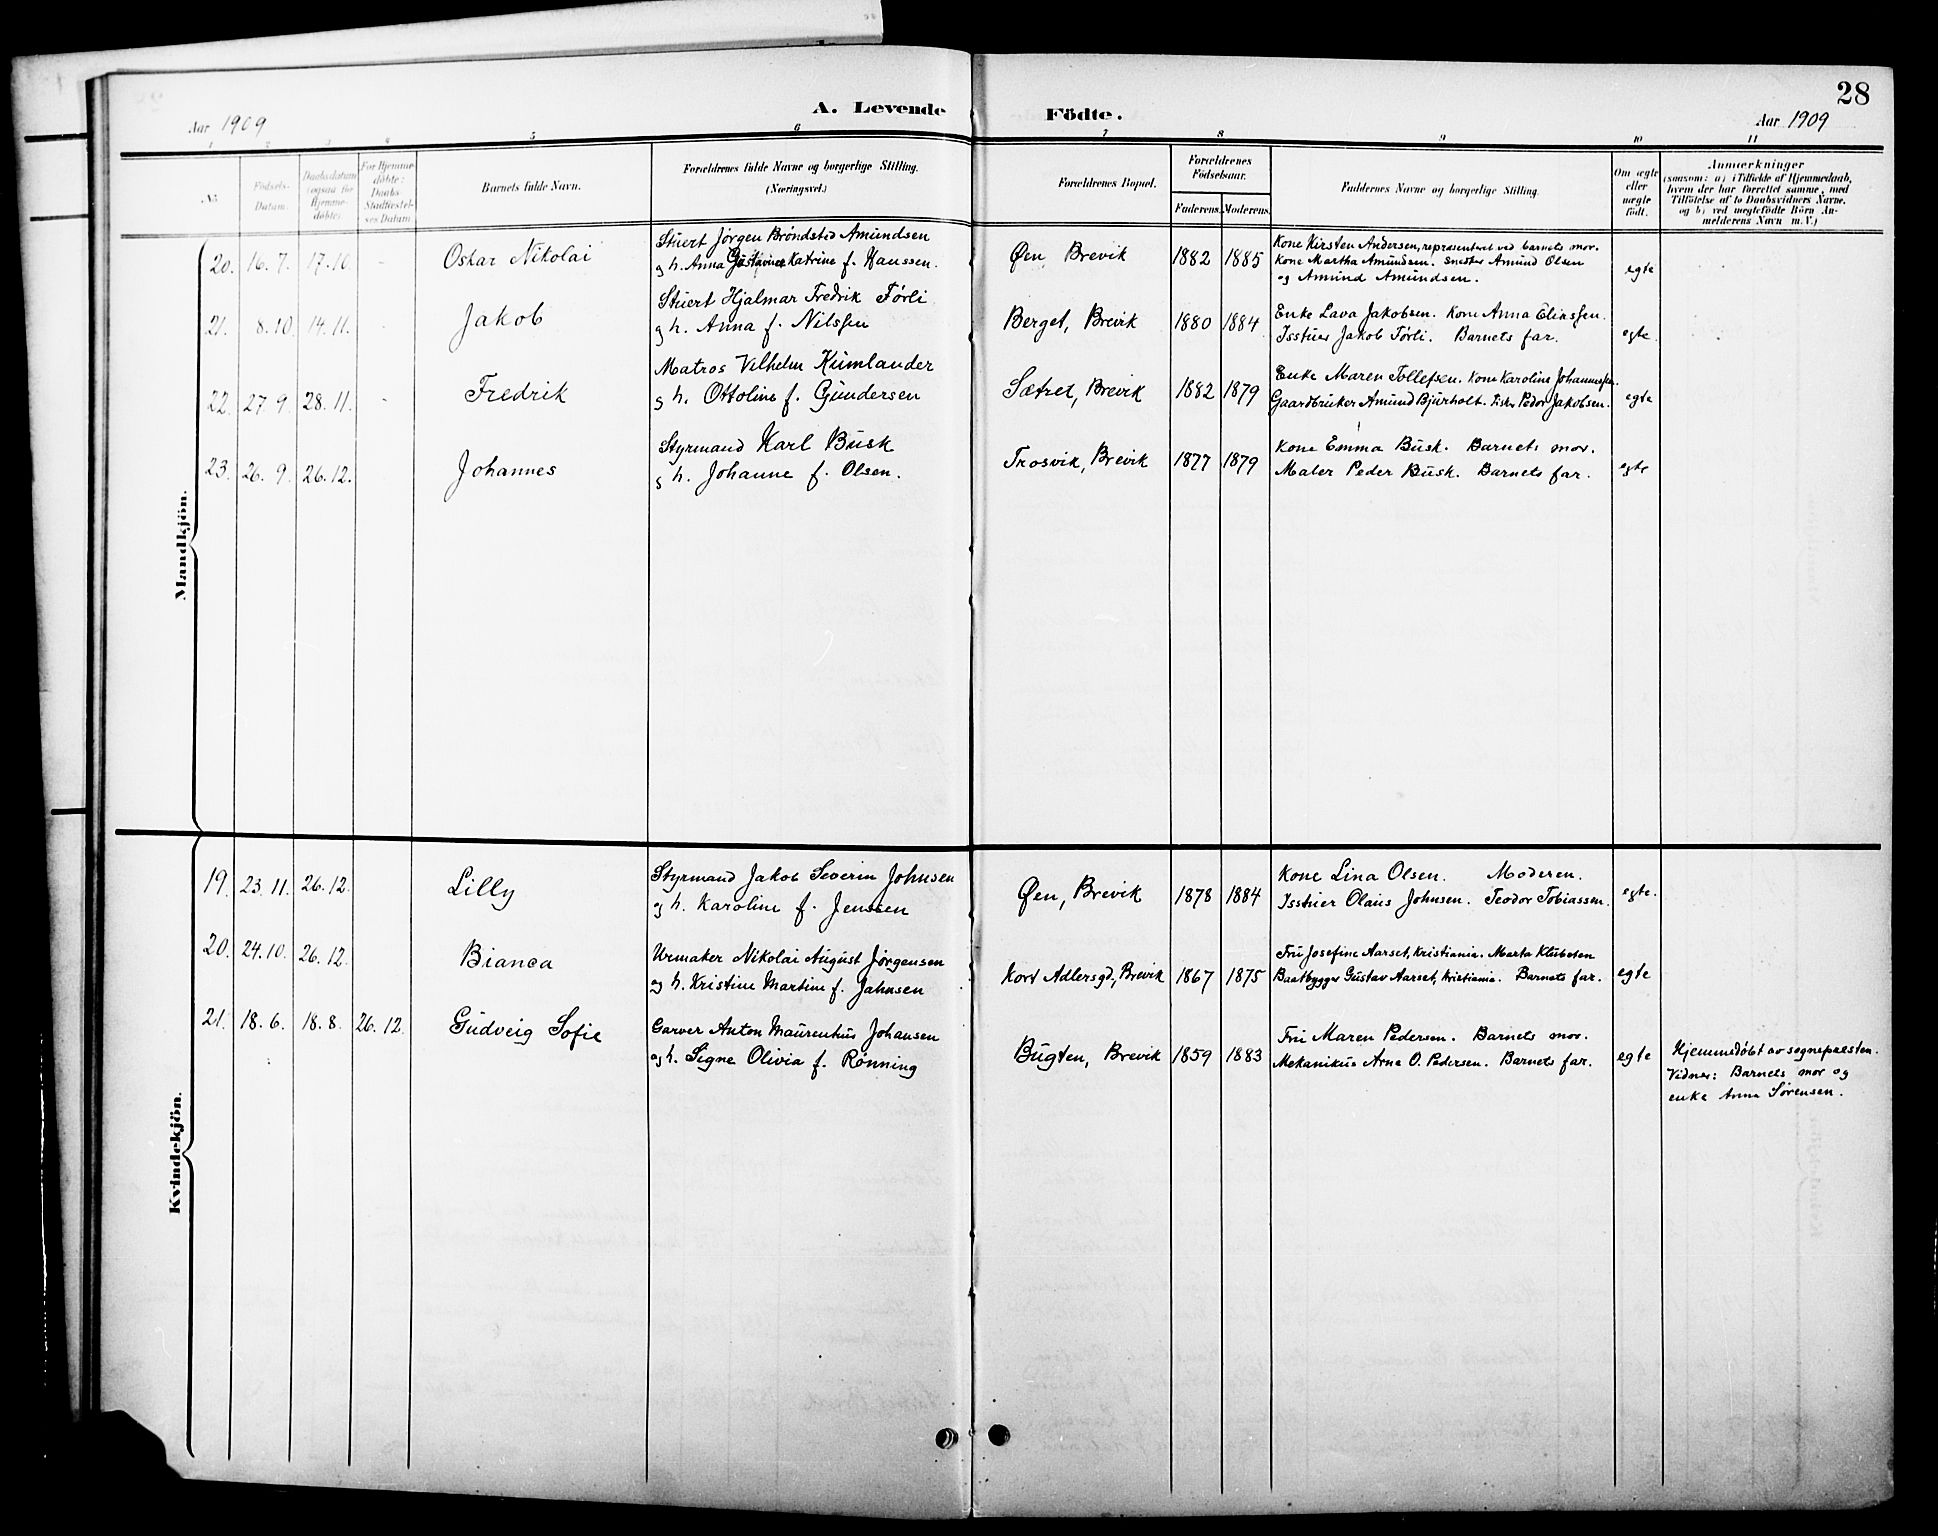 28
Aar 1909
A. Levende Födte.
Aar 1909
1 2 3 4 5 6 7 8 9 10 11
No.
Födsels-Datum.
Daabsdatum (ogsaa for Hjemme-döbte).
For Hjemme-döbte: Daabs-Stadfæstel-ses Datum
Barnets fulde Navn.
Forældrenes fulde Navne og borgerlige Stilling.
(Næringsvei.)
Forældrenes Bopæl.
Forældrenes Födselsaar.
Faderens. Moderens.
Faddernes Navne og borgerlige Stilling.
Om ægte eller uægte födt.
Anmærkninger
(saasom: a) i Tilfælde af Hjemmedaab,
hvem der har forrettet samme, med
Tilföielse af to Daabsvidners Navne,
og b) ved uægtefödte Börn An-
melderens Navn m.V.)
Mandkjön.
20. 16. 7. 17. 10 - Oskar Nikolai
Stuert Jörgen Bröndsted Amundsen
og h. Anna Gustavine Katrine f. Hanssen.
Øen Brevik 1882 1885
Kone Kirsten Andersen, repræsenteret ved barnets mor.
Kone Martha Amundsen. Amund Olsen
og Amund Amundsen.
egte
21. 8. 10. 14. 11. - Jakob
Stuert Hjalmar Fredrik Førli
og h. Anna f. Nilssen
Berget, Brevik 1880 1884
Enke Lava Jakobsen. Kone Anna Eliassen.
Jakob Førli. Barnets far.
egte.
22. 27. 9. 28. 11. - Fredrik
Matros Vilhelm Kumlander
g h. Ottoline f. Gundersen
Sætret, Brevik 1882 1879
Enke Maren Tollefsen. Kone Karoline Johannessen.
Gaardbruker Amund Bjurholt. Fisker Peder Jakobsen.
egte
23. 26. 9. 26. 12. Johannes
Styrmand Karl Busk
g h. Johanne f. Olsen.
Trosvik, Brevik 1877 1879
Kone Emma Busk. Barnets mor.
Maler Peder Busk. Barnets far.
egte
Kvindekjön.
19. 23. 11. 26. 12. Lilly
Styrmand Jakob Severin Johnsen
og h. Karoline f. Jenssen
Øen, Brevik 1878 1884
Kone Lina Olsen. Moderen.
Olaus Johnsen. Teodor Tobiassen.
egte.
20. 24. 10. 26. 12. Bianca
Urmaker Nikolai August Jørgensen
og h. Kristine Martine f. Jahnsen
Kort Adlersgd, Brevik 1867 1875
Fru Josefine Aarset, Kristiania. Marta
Baatbygger Gustav Aarset, Kristiania. Barnets far.
egte
21. 18. 6. 18. 8. 26. 12. Gudveig Sofie
Garver Anton Maurentius Johansen
og h. Signe Olivia f. Rønning
Bugten, Brevik 1859 1883
Fru Maren Pedersen. Barnets mor.
Mekanikus Arne O. Pedersen. Barnets far.
egte
Hjemmedøbt av sognepresten.
Vidner: Barnets mor og
enke Anna Sørensen.